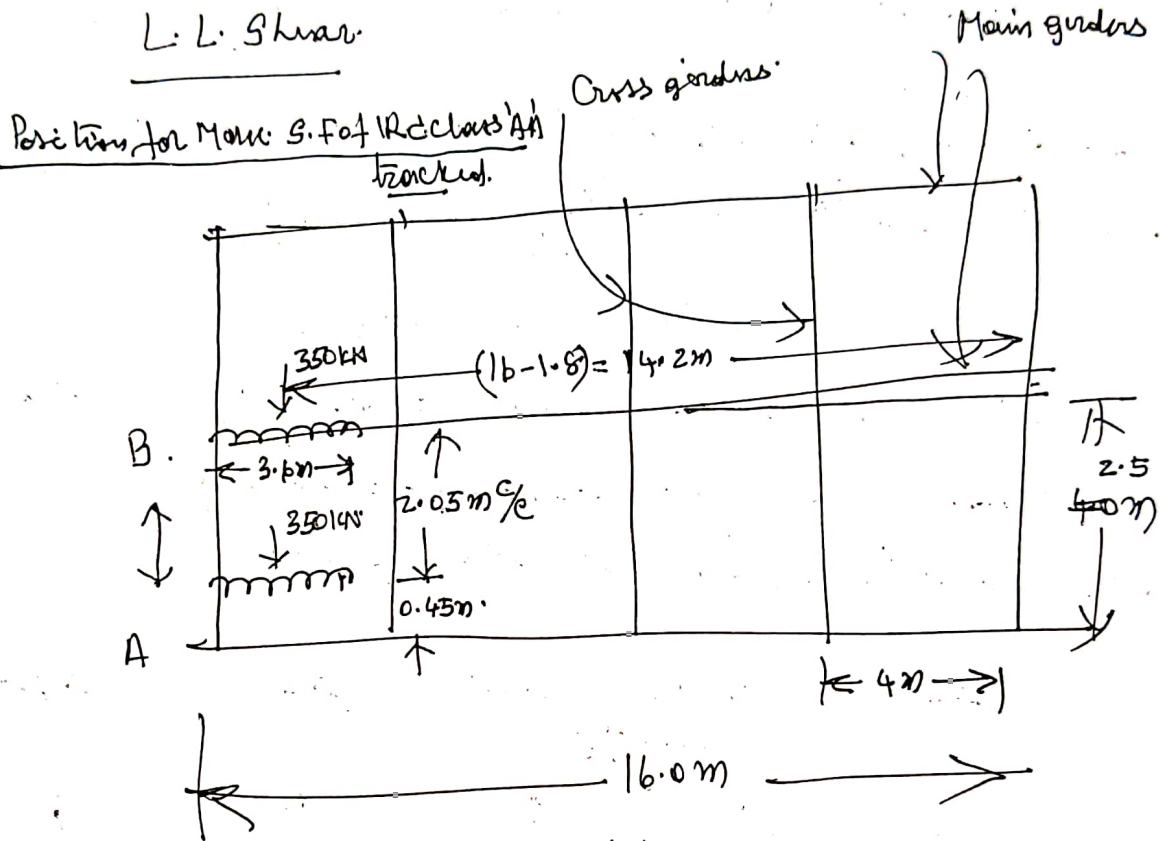 L. L. Shear.
Main girders
Cross girders
Position for Max. S.F of IRC class 'AA'
tracked.
350 KN
(16-1.8) = 14.2m
B.
3.6m
2.05m c/c
2.5
4.0m
350 KN
0.45m.
A
4m
16.0m